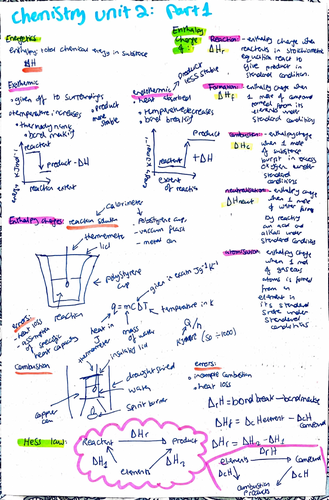 Chemistry unit 2: Part 1
Energetics
Enthalpy: total chemical energy in substance
ΔH
Exothermic
• given off to surroundings
• temperature increases
• bond making
• product more stable
reactant
product
-ΔH
reaction extent
endothermic
product less stable
• heat absorbed
• temperature decreases
• bond breaking
product
reactant
+ΔH
extent of reaction
Enthalpy Change of
Reaction - enthalpy change when
ΔHr
reactants in stoichiometric
equation react to
give product in
standard condition.
Formation - enthalpy change
ΔHf
when 1 mole of compound
formed from its
elements under
standard condition
Combustion - enthalpy change
ΔHc
when 1 mole
of substance
burnt in excess
of oxygen under
standard
conditions
neutralisation - enthalpy
ΔHneut
change when
1 mole of
water forms
by reacting
an acid and
alkali under
standard conditions
atomisation - enthalpy
change when
1 mol of
gaseous
atoms is formed
from an
element in
its
standard
state under
standard
conditions
Enthalpy changes: reaction solution
calorimeter
- polystyrene cup
- vacuum flask
- metal can
thermometer
lid
polystyrene
cup
reaction
Q = mcΔT
given in exam Jg⁻¹K⁻¹
temperature in K
mass of water
heat in J
Q/n
(÷1000)
errors:
• heat loss
of specific
heat capacity
Combustion
thermometer
insulated lid
draught shield
water
spirit burner
copper can
errors:
• incomplete combustion
• heat loss
ΔrH = bond break - bond make
ΔHf = ΔcH element - ΔcH compound
ΔHr = ΔH2 - ΔH1
Hess law:
Reactant
ΔHr
Product
ΔH1
ΔH2
elements
ΔfH
elements
compound
ΔcH
ΔcH
combustion
products